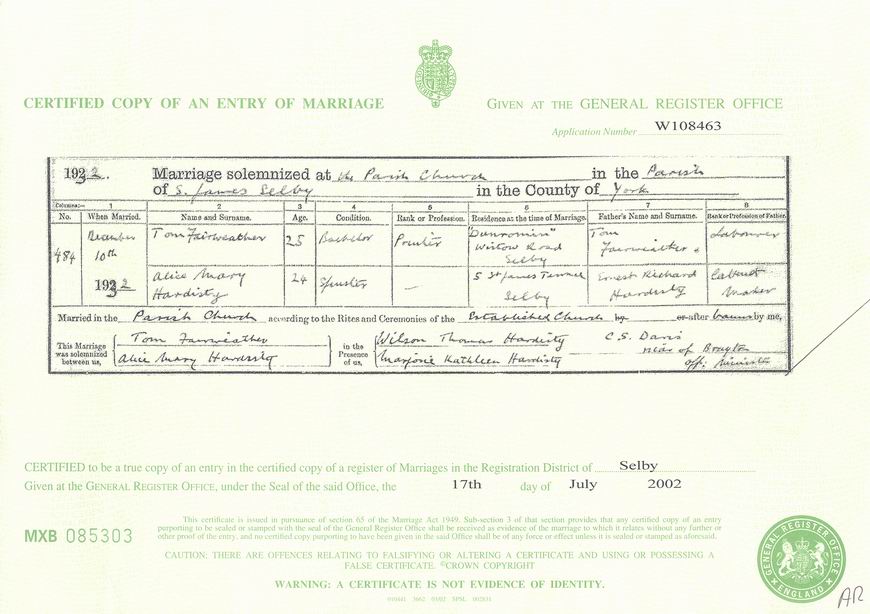 CERTIFIED COPY OF AN ENTRY OF MARRIAGE
GIVEN AT THE GENERAL REGISTER OFFICE
Application Number W108463
1932. Marriage solemnized at the Parish Church in the Parish
of S. James Selby in the County of York
Columns:— 1 2 3 4 5 6 7 8
No. When Married. Name and Surname. Age. Condition. Rank or Profession. Residence at the time of Marriage. Father's Name and Surname. Rank or Profession of Father.
484 December 10th 1932 Tom Fairweather 25 Bachelor Printer "Dunromin" Wistow Road Selby Tom Fairweather Labourer
Alice Mary Hardisty 24 Spinster — 5 St James Terrace Selby Ernest Richard Hardisty Cabinet Maker
Married in the Parish Church according to the Rites and Ceremonies of the Established Church by or after banns by me,
This Marriage was solemnized between us, Tom Fairweather Alice Mary Hardisty in the Presence of us, Wilson Thomas Hardisty Marjorie Kathleen Hardisty C.S. Davis of Brayton off: Minister
CERTIFIED to be a true copy of an entry in the certified copy of a register of Marriages in the Registration District of Selby
Given at the GENERAL REGISTER OFFICE, under the Seal of the said Office, the 17th day of July 2002
MXB 085303
This certificate is issued in pursuance of section 65 of the Marriage Act 1949. Sub-section 3 of that section provides that any certified copy of an entry
purporting to be sealed or stamped with the seal of the General Register Office shall be received as evidence of the marriage to which it relates without any further or
other proof of the entry, and no certified copy purporting to have been given in the said Office shall be of any force or effect unless it is sealed or stamped as aforesaid.
CAUTION: THERE ARE OFFENCES RELATING TO FALSIFYING OR ALTERING A CERTIFICATE AND USING OR POSSESSING A
FALSE CERTIFICATE. ©CROWN COPYRIGHT
WARNING: A CERTIFICATE IS NOT EVIDENCE OF IDENTITY.
010441 3662 03/02 SPSL 002831
GENERAL REGISTER OFFICE
ENGLAND
AR